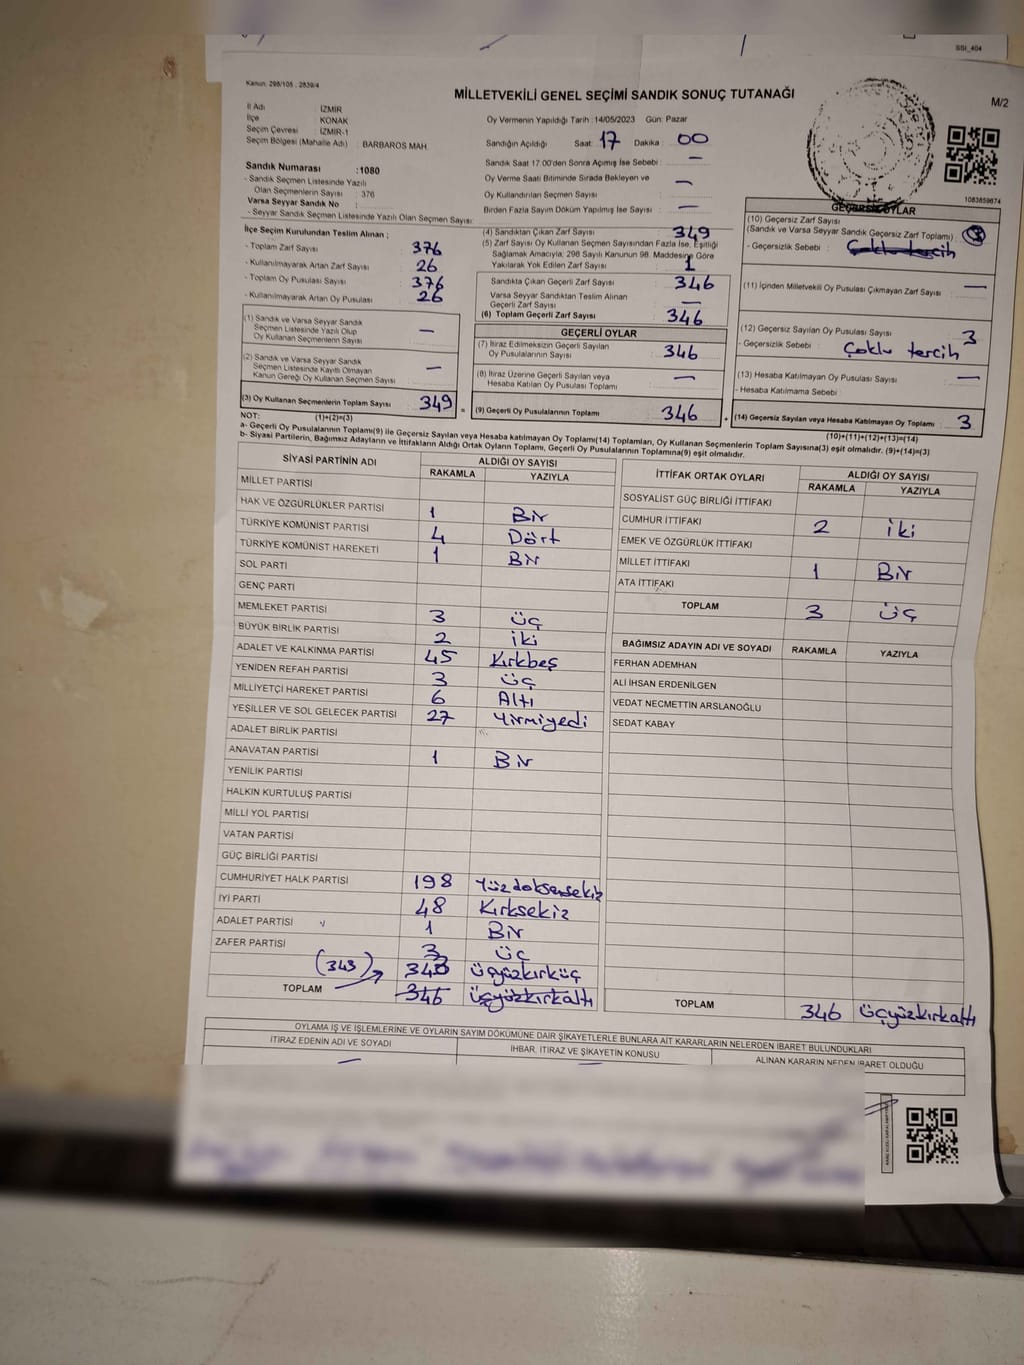 SSI_404
Kanun: 298/105 , 2839/4
MİLLETVEKİLİ GENEL SEÇİMİ SANDIK SONUÇ TUTANAĞI
M/2
İl Adı : İZMİR
İlçe : KONAK
Seçim Çevresi : İZMİR-1
Seçim Bölgesi (Mahalle Adı) : BARBAROS MAH.
Sandık Numarası :1080
- Sandık Seçmen Listesinde Yazılı
Olan Seçmenlerin Sayısı : 376
Varsa Seyyar Sandık No :
- Seyyar Sandık Seçmen Listesinde Yazılı Olan Seçmen Sayısı:
Oy Vermenin Yapıldığı Tarih :14/05/2023 Gün: Pazar
Sandığın Açıldığı Saat: 17 Dakika : 00
Sandık Saat 17:00'den Sonra Açılmış İse Sebebi : —
Oy Verme Saati Bitiminde Sırada Bekleyen ve
Oy Kullandırılan Seçmen Sayısı : —
Birden Fazla Sayım Döküm Yapılmış İse Sayısı : —
1083859674
İlçe Seçim Kurulundan Teslim Alınan ;
- Toplam Zarf Sayısı : 376
- Kullanılmayarak Artan Zarf Sayısı : 26
- Toplam Oy Pusulası Sayısı : 376
- Kullanılmayarak Artan Oy Pusulası : 26
(1) Sandık ve Varsa Seyyar Sandık
Seçmen Listesinde Yazılı Olup
Oy Kullanan Seçmenlerin Sayısı : —
(2) Sandık ve Varsa Seyyar Sandık
Seçmen Listesinde Kayıtlı Olmayan
Kanun Gereği Oy Kullanan Seçmen Sayısı : —
(3) Oy Kullanan Seçmenlerin Toplam Sayısı : 349
(4) Sandıktan Çıkan Zarf Sayısı : 349
(5) Zarf Sayısı Oy Kullanan Seçmen Sayısından Fazla İse, Eşitliği
Sağlamak Amacıyla; 298 Sayılı Kanunun 98. Maddesine Göre
Yakılarak Yok Edilen Zarf Sayısı : 1
Sandıkta Çıkan Geçerli Zarf Sayısı : 346
Varsa Seyyar Sandıktan Teslim Alınan
Geçerli Zarf Sayısı : —
(6) Toplam Geçerli Zarf Sayısı : 346
GEÇERLİ OYLAR
(7) İtiraz Edilmeksizin Geçerli Sayılan
Oy Pusulalarının Sayısı : 346
(8) İtiraz Üzerine Geçerli Sayılan veya
Hesaba Katılan Oy Pusulası Toplamı : —
(9) Geçerli Oy Pusulalarının Toplamı : 346
GEÇERSİZ OYLAR
(10) Geçersiz Zarf Sayısı
(Sandık ve Varsa Seyyar Sandık Geçersiz Zarf Toplamı) : 3
- Geçersizlik Sebebi : Çoklu tercih
(11) İçinden Milletvekili Oy Pusulası Çıkmayan Zarf Sayısı : —
(12) Geçersiz Sayılan Oy Pusulası Sayısı : 3
- Geçersizlik Sebebi : Çoklu tercih
(13) Hesaba Katılmayan Oy Pusulası Sayısı : —
- Hesaba Katılmama Sebebi :
(14) Geçersiz Sayılan veya Hesaba Katılmayan Oy Toplamı : 3
NOT: (1)+(2)=(3)
(10)+(11)+(12)+(13)=(14)
a- Geçerli Oy Pusulalarının Toplamı(9) ile Geçersiz Sayılan veya Hesaba katılmayan Oy Toplamı(14) Toplamları, Oy Kullanan Seçmenlerin Toplam Sayısına(3) eşit olmalıdır. (9)+(14)=(3)
b- Siyasi Partilerin, Bağımsız Adayların ve İttifakların Aldığı Ortak Oyların Toplamı, Geçerli Oy Pusulalarının Toplamına(9) eşit olmalıdır.
SİYASİ PARTİNİN ADI ALDIĞI OY SAYISI
RAKAMLA YAZIYLA
MİLLET PARTİSİ
HAK VE ÖZGÜRLÜKLER PARTİSİ 1 Bir
TÜRKİYE KOMÜNİST PARTİSİ 4 Dört
TÜRKİYE KOMÜNİST HAREKETİ 1 Bir
SOL PARTİ
GENÇ PARTİ
MEMLEKET PARTİSİ 3 üç
BÜYÜK BİRLİK PARTİSİ 2 iki
ADALET VE KALKINMA PARTİSİ 45 Kırkbeş
YENİDEN REFAH PARTİSİ 3 üç
MİLLİYETÇİ HAREKET PARTİSİ 6 Altı
YEŞİLLER VE SOL GELECEK PARTİSİ 27 Yirmiyedi
ADALET BİRLİK PARTİSİ
ANAVATAN PARTİSİ 1 Bir
YENİLİK PARTİSİ
HALKIN KURTULUŞ PARTİSİ
MİLLİ YOL PARTİSİ
VATAN PARTİSİ
GÜÇ BİRLİĞİ PARTİSİ
CUMHURİYET HALK PARTİSİ 198 Yüzdoksensekiz
İYİ PARTİ 48 Kırksekiz
ADALET PARTİSİ 1 Bir
ZAFER PARTİSİ 3 üç
(343) 343 üçyüzkırküç
TOPLAM 346 üçyüzkırkaltı
İTTİFAK ORTAK OYLARI ALDIĞI OY SAYISI
RAKAMLA YAZIYLA
SOSYALİST GÜÇ BİRLİĞİ İTTİFAKI
CUMHUR İTTİFAKI 2 iki
EMEK VE ÖZGÜRLÜK İTTİFAKI
MİLLET İTTİFAKI 1 Bir
ATA İTTİFAKI
TOPLAM 3 üç
BAĞIMSIZ ADAYIN ADI VE SOYADI RAKAMLA YAZIYLA
FERHAN ADEMHAN
ALİ İHSAN ERDENİLGEN
VEDAT NECMETTİN ARSLANOĞLU
SEDAT KABAY
TOPLAM 346 üçyüzkırkaltı
OYLAMA İŞ VE İŞLEMLERİNE VE OYLARIN SAYIM DÖKÜMÜNE DAİR ŞİKAYETLERLE BUNLARA AİT KARARLARIN NELERDEN İBARET BULUNDUKLARI
İTİRAZ EDENİN ADI VE SOYADI İHBAR, İTİRAZ VE ŞİKAYETİN KONUSU ALINAN KARARIN NEDEN İBARET OLDUĞU